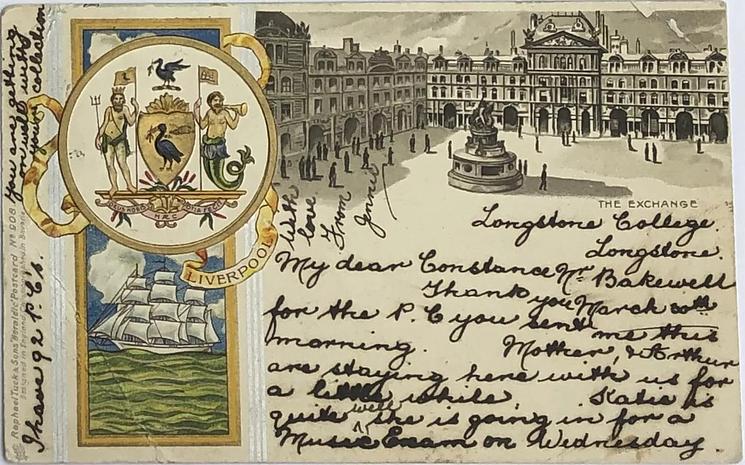 THE EXCHANGE
Longstone College
Longstone.
Nr Bakewell
March 20th
My dear Constance
Thank you
for the P.C you sent me this
morning. Mother, & Arthur
are staying here with us for
a little while Katie is
quite well she is going in for a
Music Exam on Wednesday
With
love
From
Jennie
You are getting
on well with
your collection
I have 92 P.C's.
LIVERPOOL
DEUS NOBIS
HÆC
OTIA FECIT
Raphael Tuck & Sons' "Heraldic" Postcard Nº 908
Designed in England